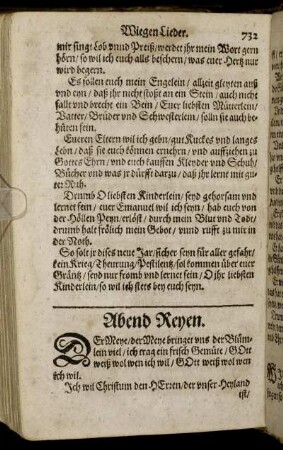 Wiegen Lieder. 732
mir sing: Lob vnnd Preiß/werdet jhr mein Wort gern
hörn/so wil ich euch alls beschern/was euer Hertz nur
wird begern.
Es sollen euch mein Engelein/allzeit gleyten auß
vnd eyn/daß jhr nicht stoßt an ein Stein/auch nicht
fallt vnd brecht ein Bein/Euer liebsten Mütterlein/
Vatter/Brüder vnd Schwesterlein/solln sie auch be-
hüten fein.
Eueren Eltern wil ich gebn/gut Kuckes vnd langes
Lebn/daß sie euch können ernehrn/vnd auffziehen zu
Gottes Ehrn/vnd euch kauffen Kleyder vnd Schuh/
Bücher vnd was jr dürfft darzu/daß jhr lernt mit gu-
ter Ruh.
Drumb O liebsten Kinderlein/seyd gehorsam vnd
lernet fein/euer Emanuel wil ich seyn/hab euch von
der Höllen Peyn/erlöst/durch mein Blut vnd Todt/
drumb halt frölich mein Gebot/vnnd rufft zu mir in
der Noth.
So solt jr dises neue Jar/sicher seyn für aller gefahr/
kein Krieg/Theurung/Pestilentz/sol kommen über euer
Gräntz/seyd nur fromb vnd lernet fein/O jhr liebsten
Kinderlein/so wil ich stets bey euch seyn.
Abend Reyen.
DEr Meye/der Meye bringet vns der Blüm-
lein viel/ich trag ein frisch Gemüte/GOtt
weiß wol wen ich wil/GOtt weiß wol wen
ich wil.
Ich wil Christum den HErren/der vnser Heyland
ist/